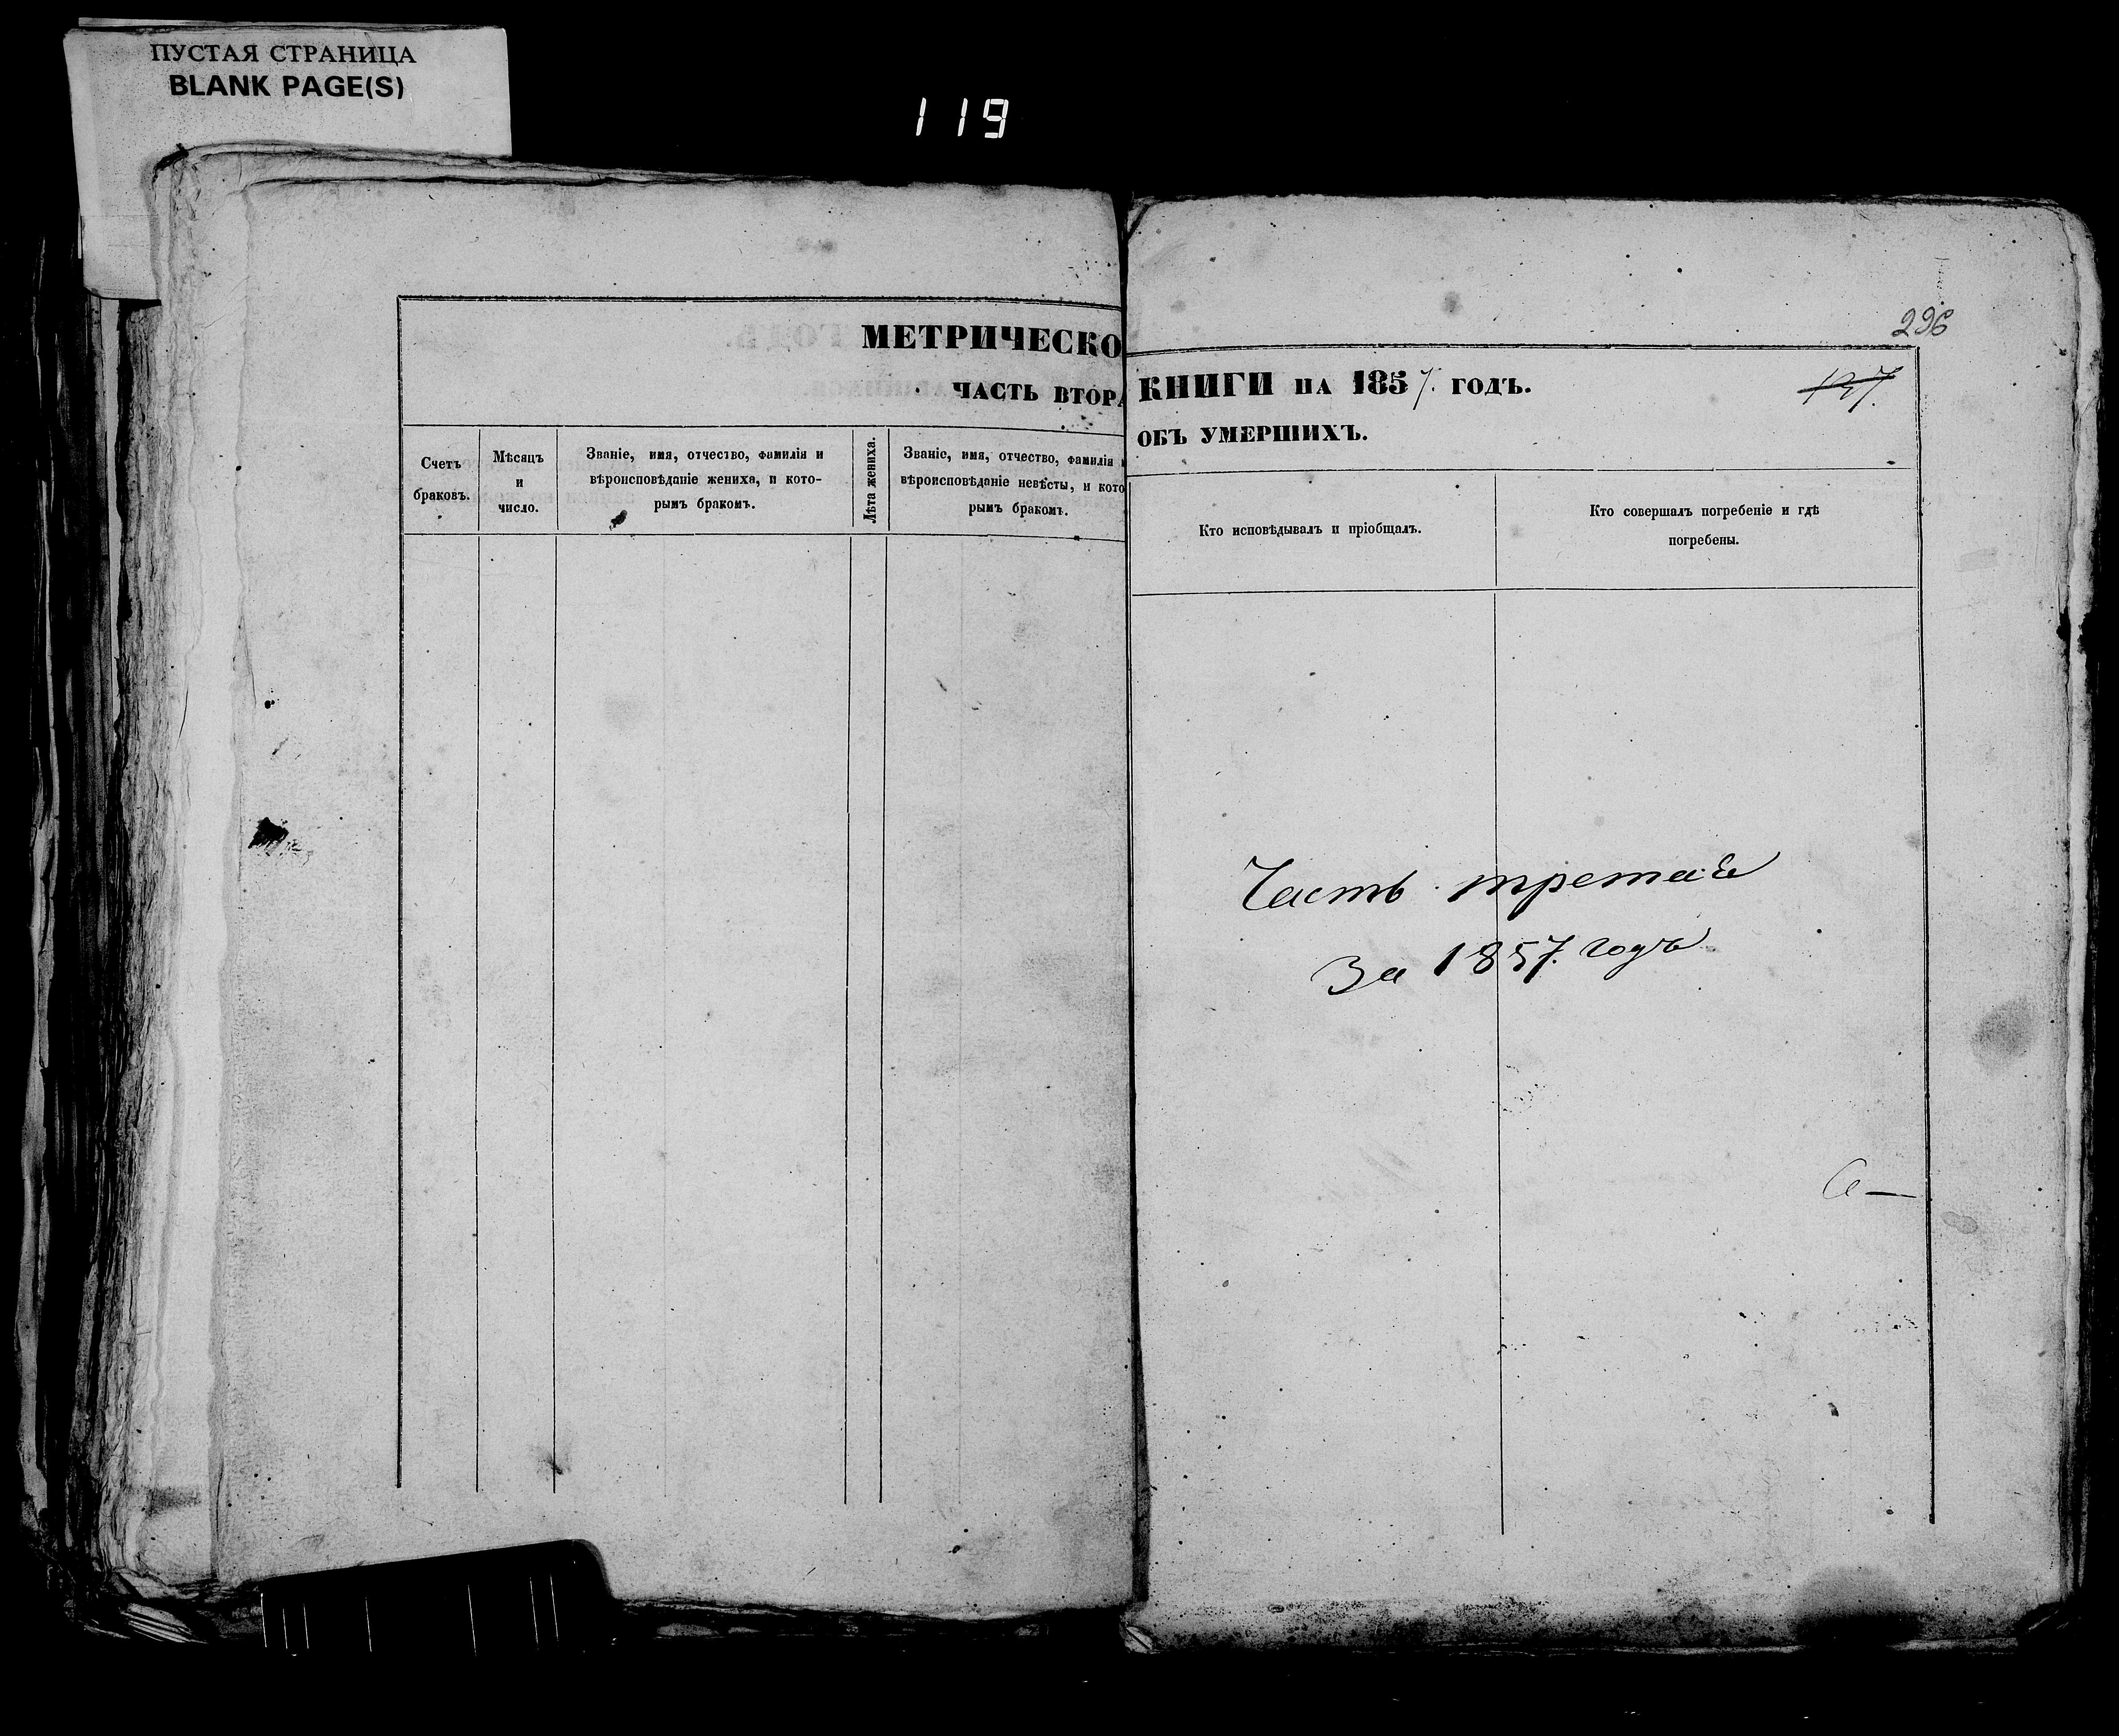 ПУСТАЯ СТРАНИЦА
BLANK PAGE(S)
119
МЕТРИЧЕСКО
ЧАСТЬ ВТОРА
Счетъ браковъ.
Мѣсяцъ и число.
Званіе, имя, отчество, фамилія и
вѣроисповѣданіе жениха, и кото-
рымъ бракомъ.
Лѣта жениха.
Званіе, имя, отчество, фамилія и
вѣроисповѣданіе невѣсты, и кото
рымъ бракомъ.
296
КНИГИ НА 1857. ГОДЪ.
137.
ОБЪ УМЕРШИХЪ.
Кто исповѣдывалъ и пріобщалъ.
Кто совершалъ погребеніе и гдѣ
погребены.
Часть третая
За 1857. годъ